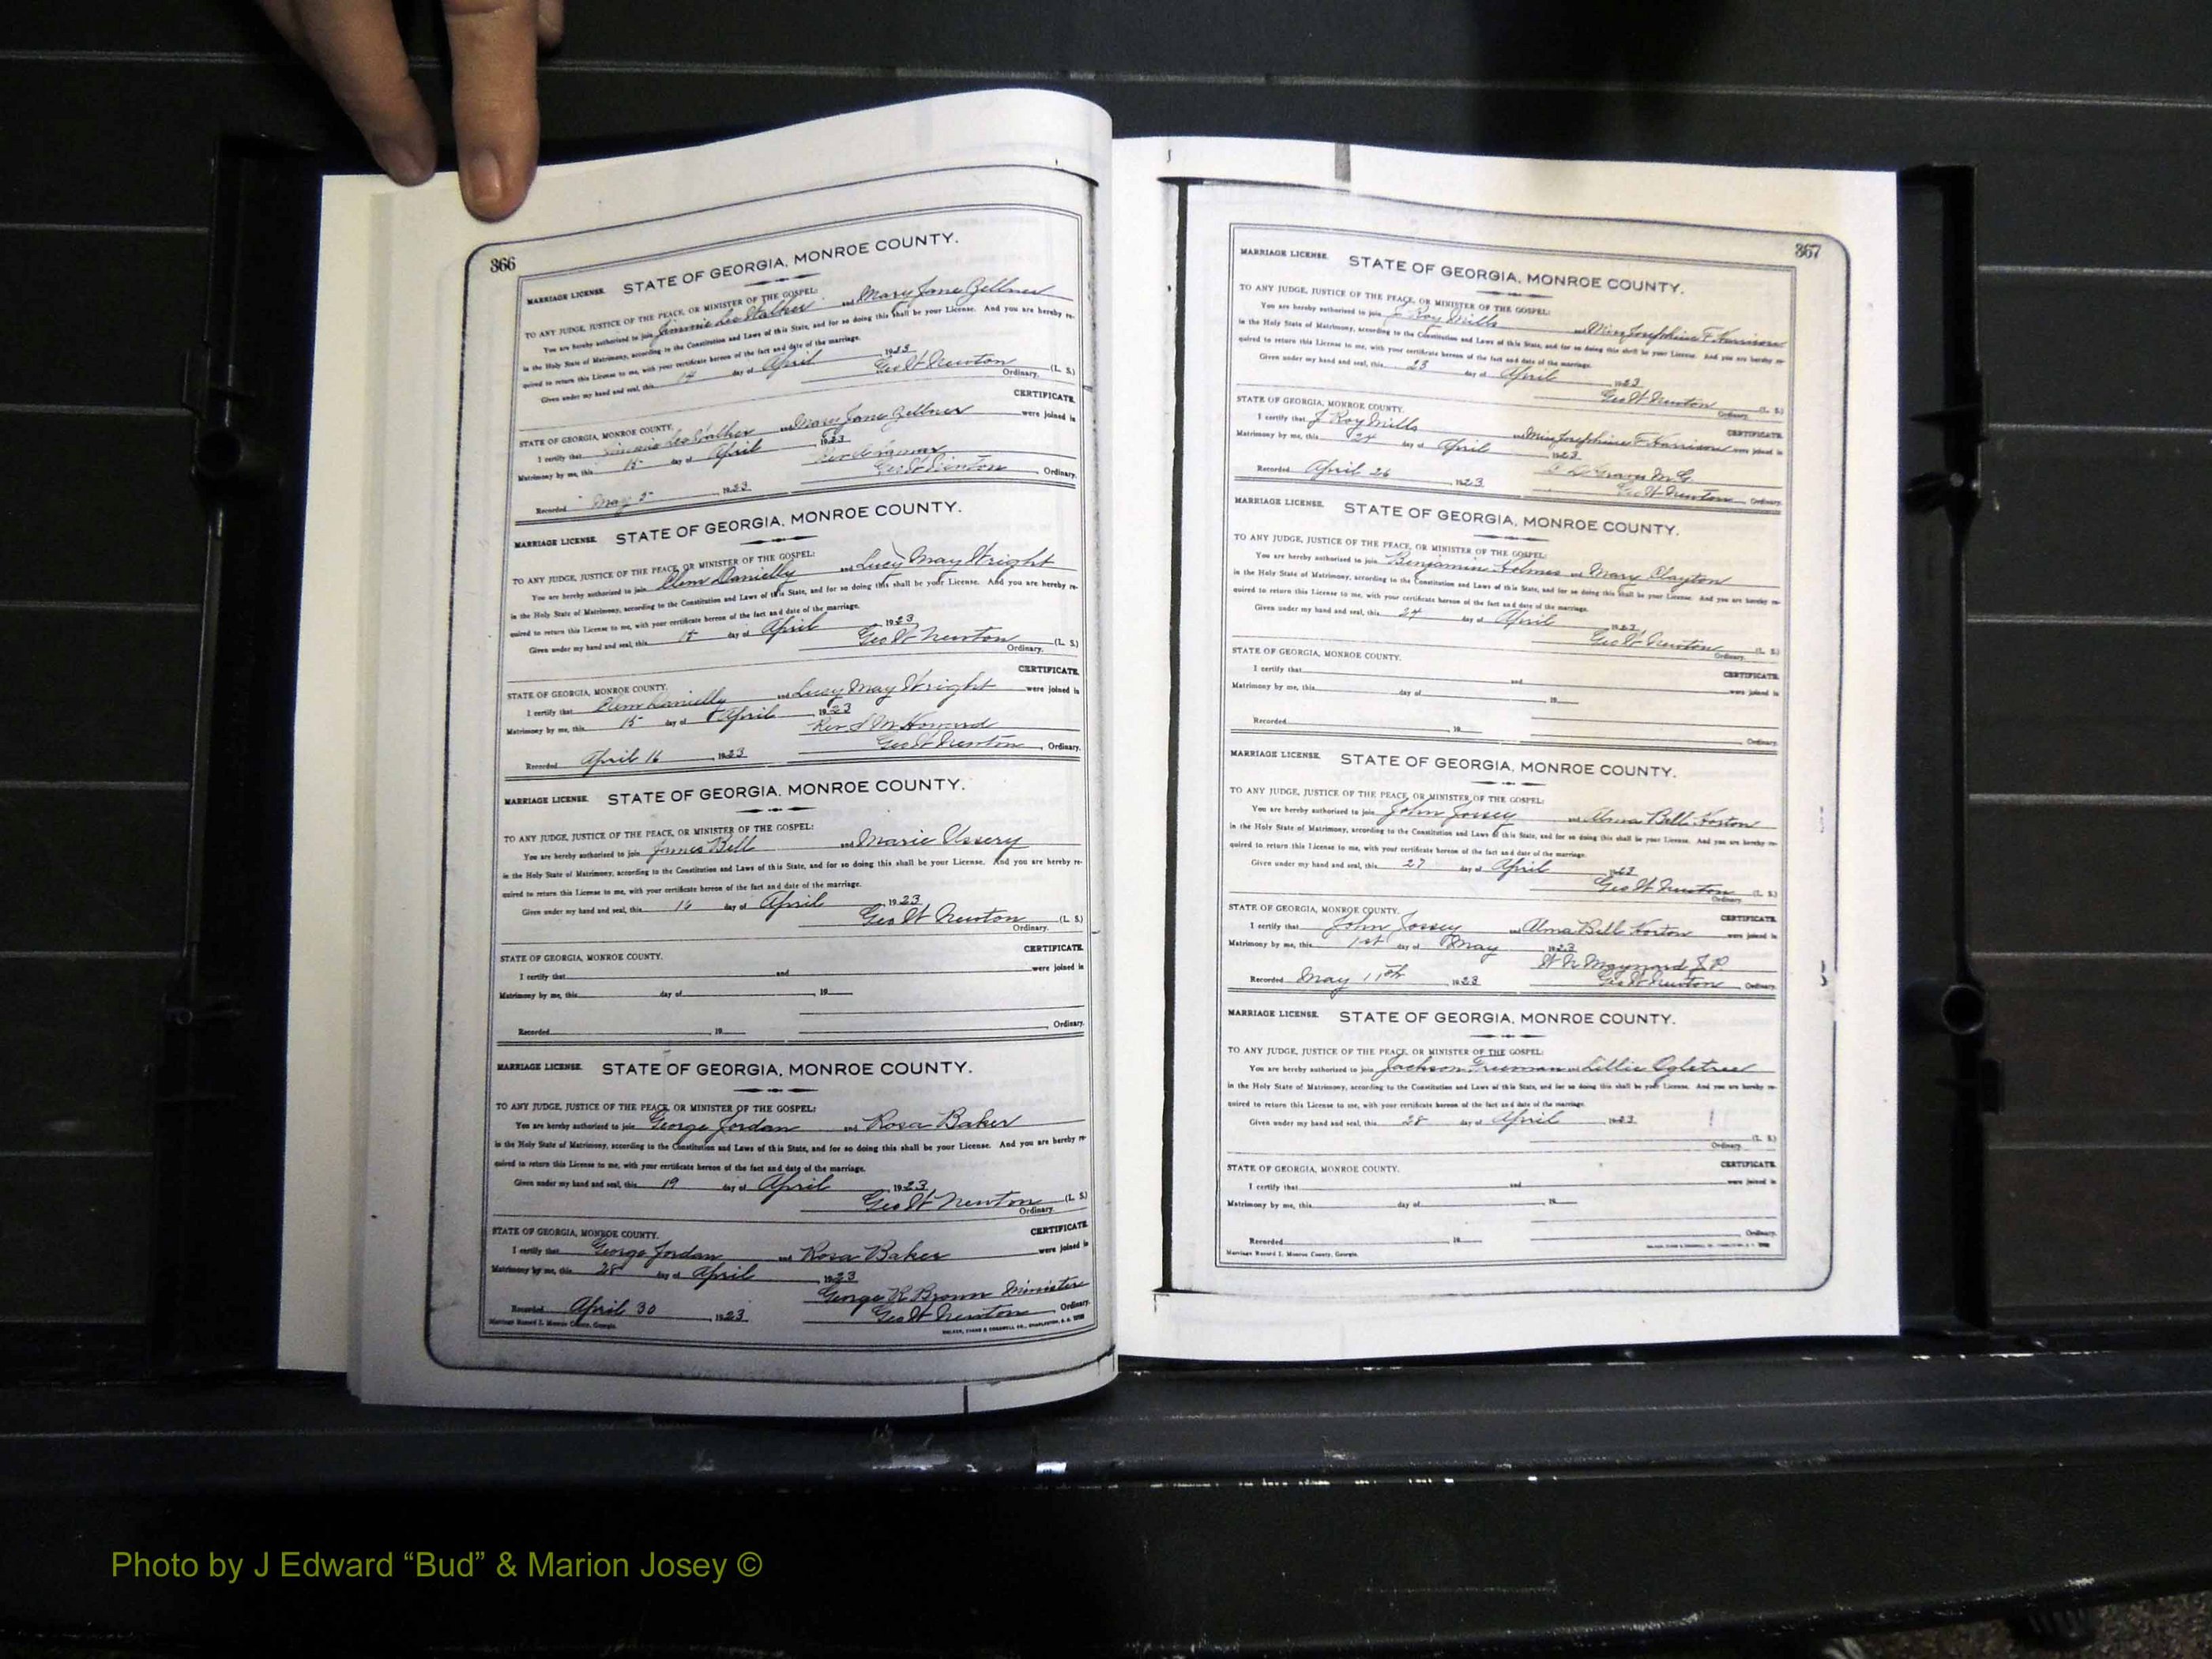 366
MARRIAGE LICENSE. STATE OF GEORGIA, MONROE COUNTY.
TO ANY JUDGE, JUSTICE OF THE PEACE, OR MINISTER OF THE GOSPEL:
You are hereby authorized to join Jimmie Leo Walker and Mary Jane Zellner
in the Holy State of Matrimony, according to the Constitution and Laws of this State, and for so doing this shall be your License. And you are hereby re-
quired to return this License to me, with your certificate hereon of the fact and date of the marriage.
Given under my hand and seal, this 14 day of April, 1923
Geo W Newton (L. S.)
Ordinary.
CERTIFICATE.
STATE OF GEORGIA, MONROE COUNTY.
I certify that Jimmie Leo Walker and Mary Jane Zellner were joined in
Matrimony by me, this 15 day of April, 1923
Rev
Recorded May 5, 1923 Geo W Newton, Ordinary.
MARRIAGE LICENSE. STATE OF GEORGIA, MONROE COUNTY.
TO ANY JUDGE, JUSTICE OF THE PEACE, OR MINISTER OF THE GOSPEL:
You are hereby authorized to join Clem Danielly and Lucy May Wright
in the Holy State of Matrimony, according to the Constitution and Laws of this State, and for so doing this shall be your License. And you are hereby re-
quired to return this License to me, with your certificate hereon of the fact and date of the marriage.
Given under my hand and seal, this 15 day of April, 1923
Geo W Newton (L. S.)
Ordinary.
CERTIFICATE.
STATE OF GEORGIA, MONROE COUNTY.
I certify that Clem Danielly and Lucy May Wright were joined in
Matrimony by me, this 15 day of April, 1923
Rev S M Howard
Recorded April 16, 1923 Geo W Newton, Ordinary.
MARRIAGE LICENSE. STATE OF GEORGIA, MONROE COUNTY.
TO ANY JUDGE, JUSTICE OF THE PEACE, OR MINISTER OF THE GOSPEL:
You are hereby authorized to join James Bell and Marie Ussery
in the Holy State of Matrimony, according to the Constitution and Laws of this State, and for so doing this shall be your License. And you are hereby re-
quired to return this License to me, with your certificate hereon of the fact and date of the marriage.
Given under my hand and seal, this 16 day of April, 1923
Geo W Newton (L. S.)
Ordinary.
CERTIFICATE.
STATE OF GEORGIA, MONROE COUNTY.
I certify that and were joined in
Matrimony by me, this day of, 19
Recorded, 19, Ordinary.
MARRIAGE LICENSE. STATE OF GEORGIA, MONROE COUNTY.
TO ANY JUDGE, JUSTICE OF THE PEACE, OR MINISTER OF THE GOSPEL:
You are hereby authorized to join George Jordan and Rosa Baker
in the Holy State of Matrimony, according to the Constitution and Laws of this State, and for so doing this shall be your License. And you are hereby re-
quired to return this License to me, with your certificate hereon of the fact and date of the marriage.
Given under my hand and seal, this 19 day of April, 1923
Geo W Newton (L. S.)
Ordinary.
CERTIFICATE.
STATE OF GEORGIA, MONROE COUNTY.
I certify that George Jordan and Rosa Baker were joined in
Matrimony by me, this 28 day of April, 1923
George R Brown Minister
Recorded April 30, 1923 Geo W Newton, Ordinary.
Marriage Record I. Monroe County, Georgia. WALKER, EVANS & COGSWELL CO., CHARLESTON, S. C.
367
MARRIAGE LICENSE. STATE OF GEORGIA, MONROE COUNTY.
TO ANY JUDGE, JUSTICE OF THE PEACE, OR MINISTER OF THE GOSPEL:
You are hereby authorized to join J Roy Mills and Miss Josephine F. Harrison
in the Holy State of Matrimony, according to the Constitution and Laws of this State, and for so doing this shall be your License. And you are hereby re-
quired to return this License to me, with your certificate hereon of the fact and date of the marriage.
Given under my hand and seal, this 23 day of April, 1923
Geo W Newton (L. S.)
Ordinary.
CERTIFICATE.
STATE OF GEORGIA, MONROE COUNTY.
I certify that J Roy Mills and Miss Josephine F Harrison were joined in
Matrimony by me, this 24 day of April, 1923
Graves M.G.
Recorded April 26, 1923 Geo W Newton, Ordinary.
MARRIAGE LICENSE. STATE OF GEORGIA, MONROE COUNTY.
TO ANY JUDGE, JUSTICE OF THE PEACE, OR MINISTER OF THE GOSPEL:
You are hereby authorized to join Benjamin Holmes and Mary Clayton
in the Holy State of Matrimony, according to the Constitution and Laws of this State, and for so doing this shall be your License. And you are hereby re-
quired to return this License to me, with your certificate hereon of the fact and date of the marriage.
Given under my hand and seal, this 24 day of April, 1923
Geo W Newton (L. S.)
Ordinary.
CERTIFICATE.
STATE OF GEORGIA, MONROE COUNTY.
I certify that and were joined in
Matrimony by me, this day of, 19
Recorded, 19
Ordinary.
MARRIAGE LICENSE. STATE OF GEORGIA, MONROE COUNTY.
TO ANY JUDGE, JUSTICE OF THE PEACE, OR MINISTER OF THE GOSPEL:
You are hereby authorized to join John Jossey and Alma Bell Horton
in the Holy State of Matrimony, according to the Constitution and Laws of this State, and for so doing this shall be your License. And you are hereby re-
quired to return this License to me, with your certificate hereon of the fact and date of the marriage.
Given under my hand and seal, this 27 day of April, 1923
Geo W Newton (L. S.)
Ordinary.
CERTIFICATE.
STATE OF GEORGIA, MONROE COUNTY.
I certify that John Jossey and Alma Bell Horton were joined in
Matrimony by me, this 1st day of May, 1923
W N Maynard J.P.
Recorded May 11th, 1923 Geo W Newton, Ordinary.
MARRIAGE LICENSE. STATE OF GEORGIA, MONROE COUNTY.
TO ANY JUDGE, JUSTICE OF THE PEACE, OR MINISTER OF THE GOSPEL:
You are hereby authorized to join Jackson Freeman and Lillie Ogletree
in the Holy State of Matrimony, according to the Constitution and Laws of this State, and for so doing this shall be your License. And you are hereby re-
quired to return this License to me, with your certificate hereon of the fact and date of the marriage.
Given under my hand and seal, this 28 day of April, 1923
(L. S.)
Ordinary.
CERTIFICATE.
STATE OF GEORGIA, MONROE COUNTY.
I certify that and were joined in
Matrimony by me, this day of, 19
Recorded, 19, Ordinary.
Marriage Record I. Monroe County, Georgia.
Photo by J Edward “Bud” & Marion Josey ©